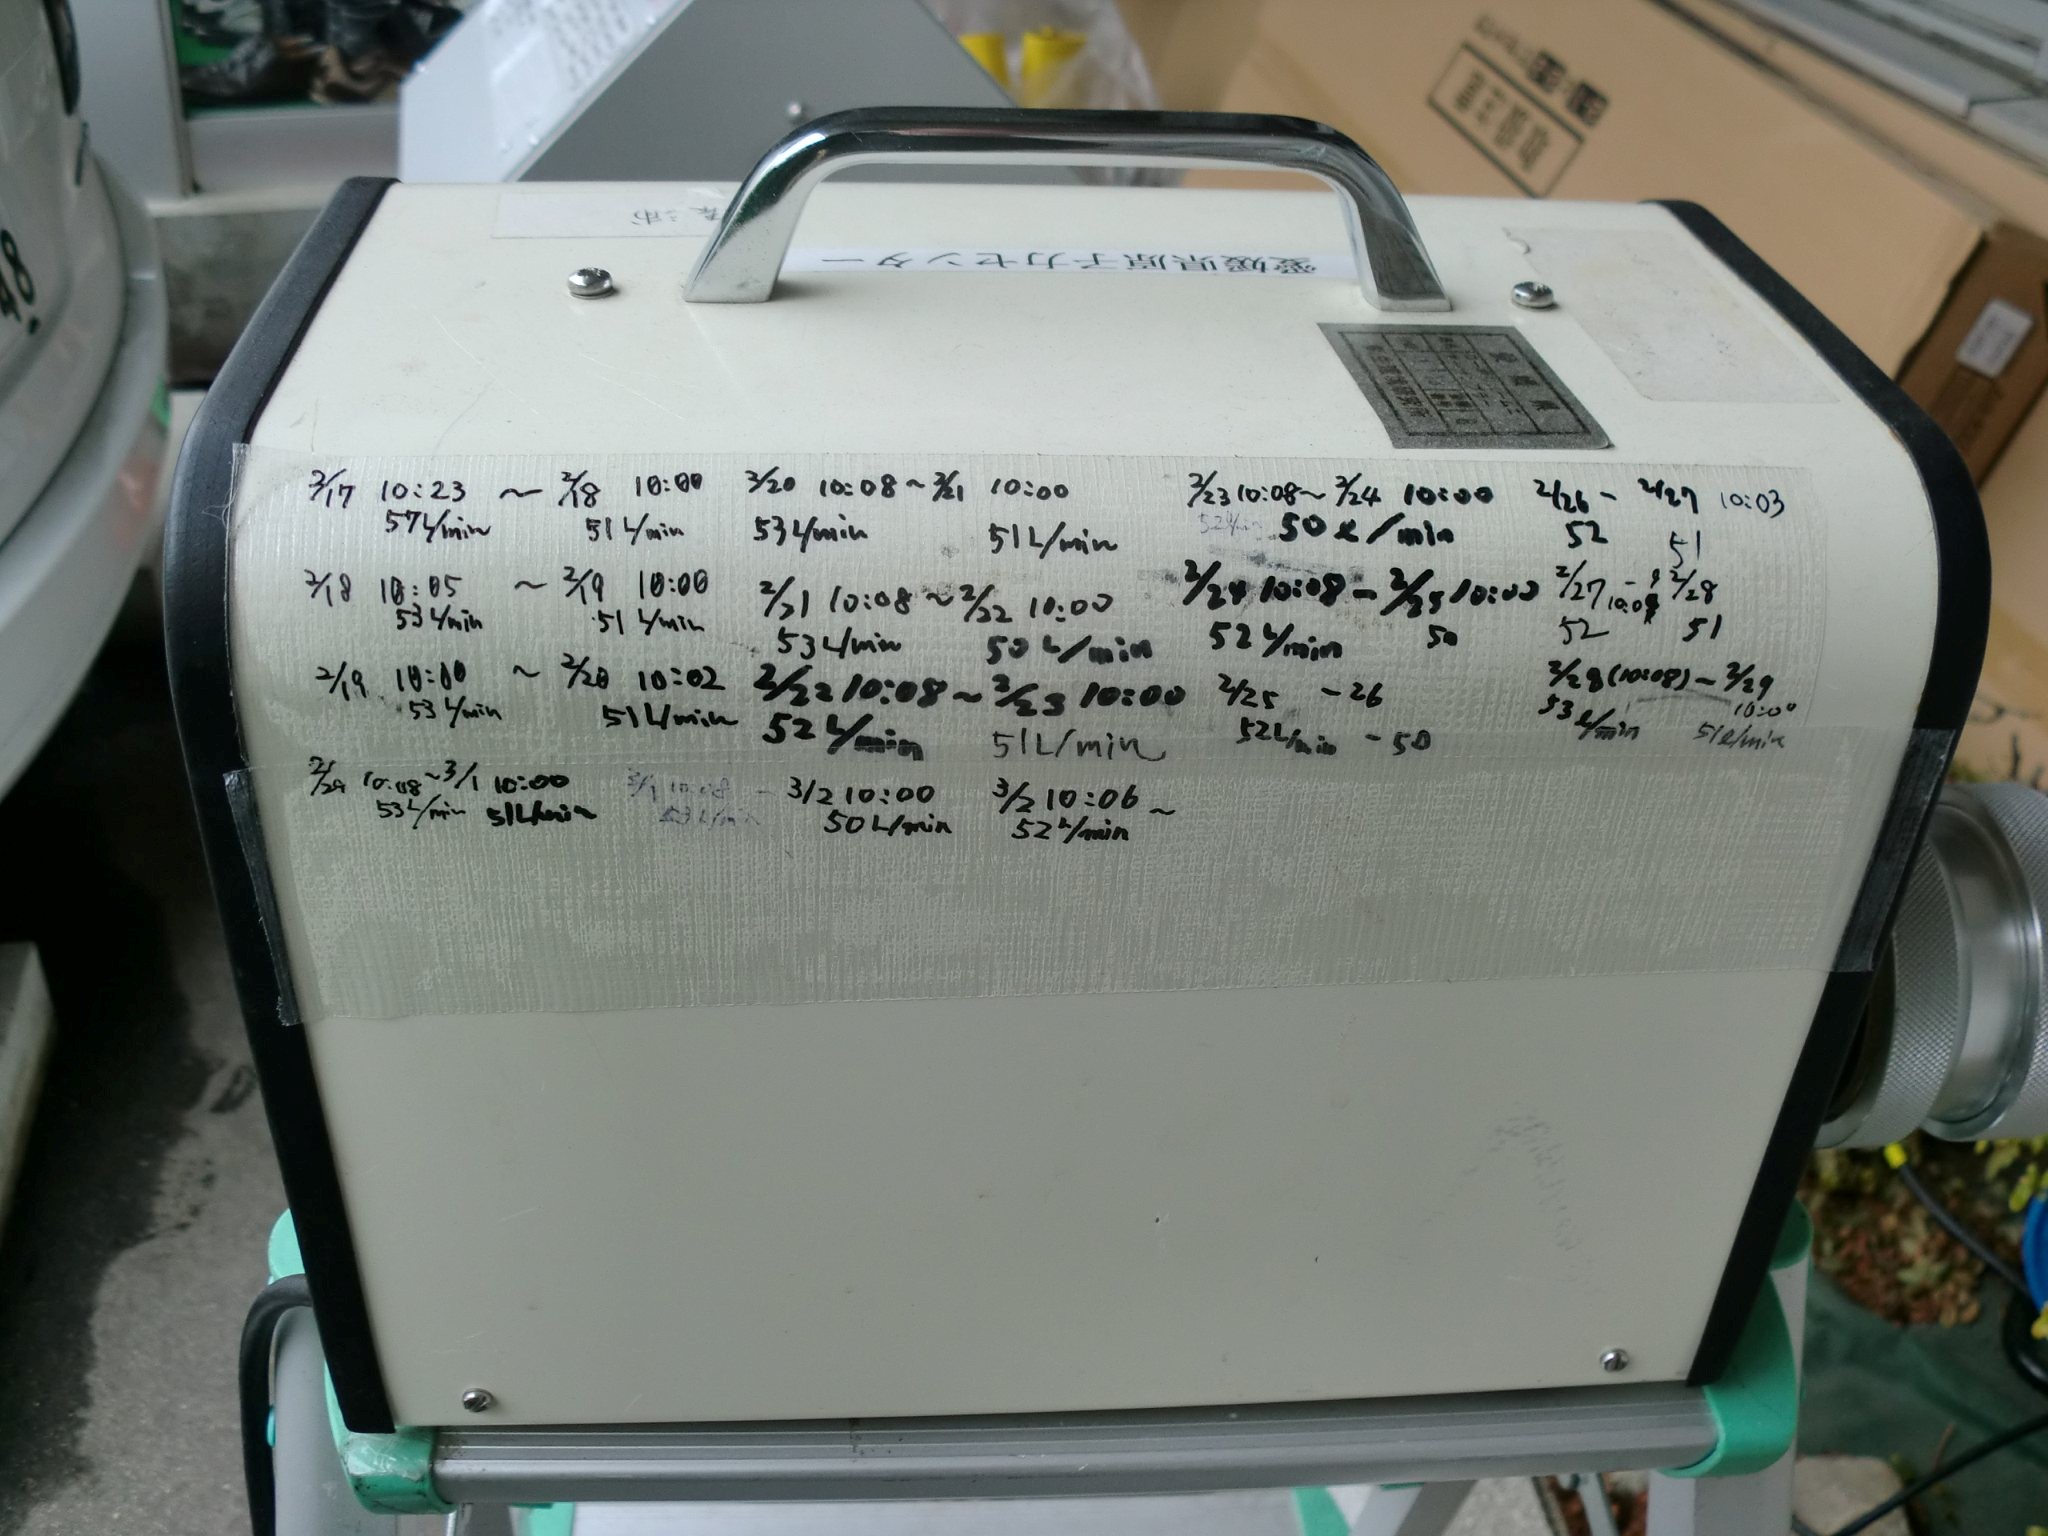 愛媛県原子力センター
2/17 10:23 ~ 2/18 10:00
57L/min 51L/min
2/18 10:05 ~ 2/19 10:00
53L/min 51L/min
2/19 10:00 ~ 2/20 10:02
53L/min 51L/min
2/20 10:08 ~ 2/21 10:00
53L/min 51L/min
2/21 10:08 ~ 2/22 10:00
53L/min 50L/min
2/22 10:08 ~ 2/23 10:00
52L/min 51L/min
2/23 10:08 ~ 2/24 10:00
52L/min 50ℓ/min
2/24 10:08 - 2/25 10:00
52L/min 50
2/25 - 26
52L/min - 50
2/26 - 2/27 10:03
52 51
2/27 10:08 - 2/28
52 51
2/28 (10:08) ~ 2/29
10:00
53ℓ/min 51ℓ/min
2/29 10:08 ~ 3/1 10:00
53L/min 51L/min
3/1 10:08 - 3/2 10:00
50L/min
3/2 10:06 ~
52L/min